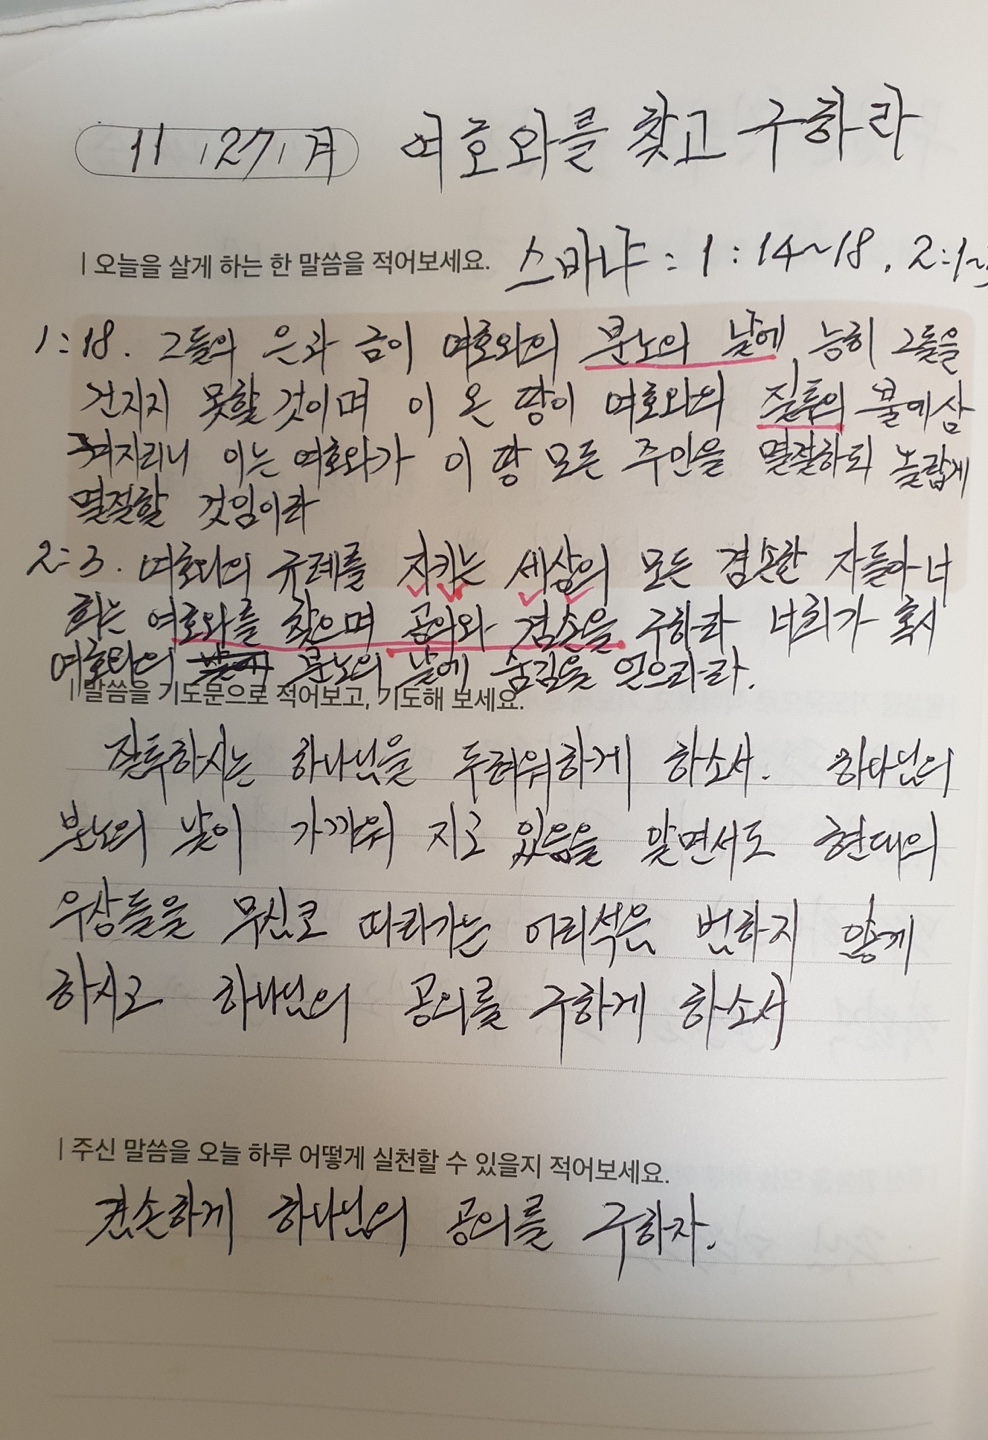 11. 27. 月 여호와를 찾고 구하라
| 오늘을 살게 하는 한 말씀을 적어보세요. 스바냐 : 1:14~18, 2:1~3
1:18. 그들의 은과 금이 여호와의 분노의 날에 능히 그들을
건지지 못할 것이며 이 온 땅이 여호와의 질투의 불에 삼
켜지리니 이는 여호와가 이 땅 모든 주민을 멸절하되 놀랍게
멸절할 것임이라
2:3. 여호와의 규례를 지키는 세상의 모든 겸손한 자들아 너
희는 여호와를 찾으며 공의와 겸손을 구하라 너희가 혹시
여호와의 분노의 날에 숨김을 얻으리라.
| 말씀을 기도문으로 적어보고, 기도해 보세요.
질투하시는 하나님을 두려워하게 하소서. 하나님의
분노의 날이 가까워 지고 있음을 알면서도 현대의
우상들을 무심코 따라가는 어리석은 범하지 않게
하시고 하나님의 공의를 구하게 하소서
| 주신 말씀을 오늘 하루 어떻게 실천할 수 있을지 적어보세요.
겸손하게 하나님의 공의를 구하자.